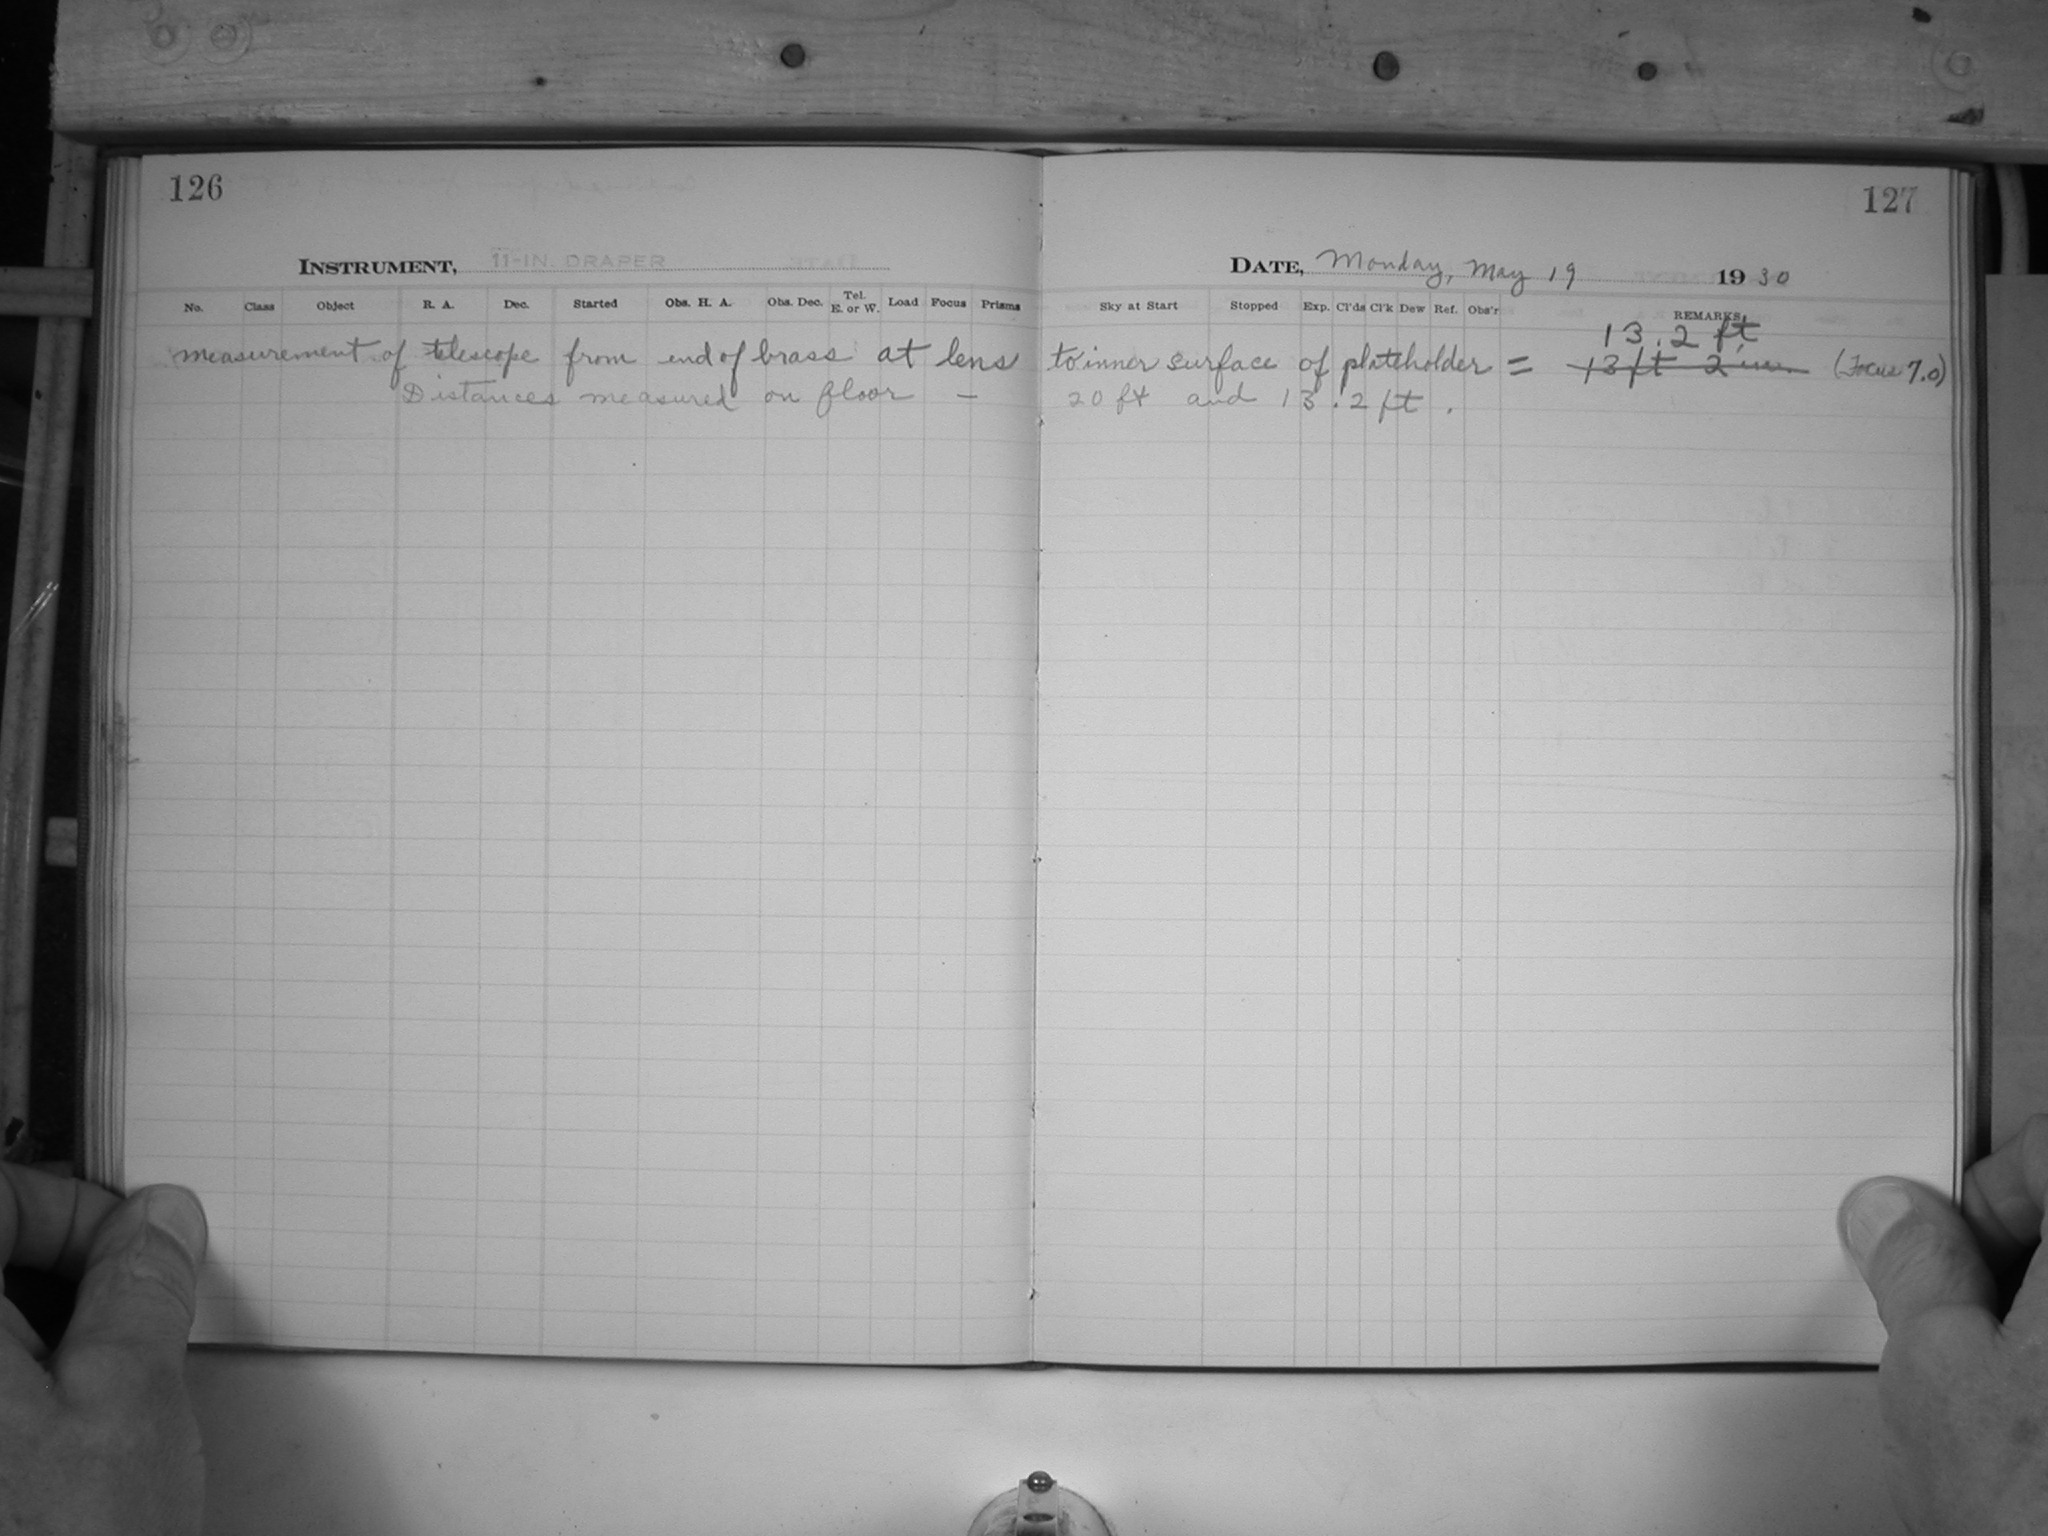 126
127
INSTRUMENT, 11-IN. DRAPER
DATE, Monday, May 19 1930
No. Class Object R. A. Dec. Started Obs. H. A. Obs. Dec. Tel. E. or W. Load Focus Prisms
Sky at Start Stopped Exp. Cl'ds Cl'k Dew Ref. Obs'r REMARKS
13.2 ft
measurement of telescope from end of brass at lens to inner surface of plateholder = 13 ft 2 in. (Focus 7.0)
Distances measured on floor — 20 ft and 13.2 ft.